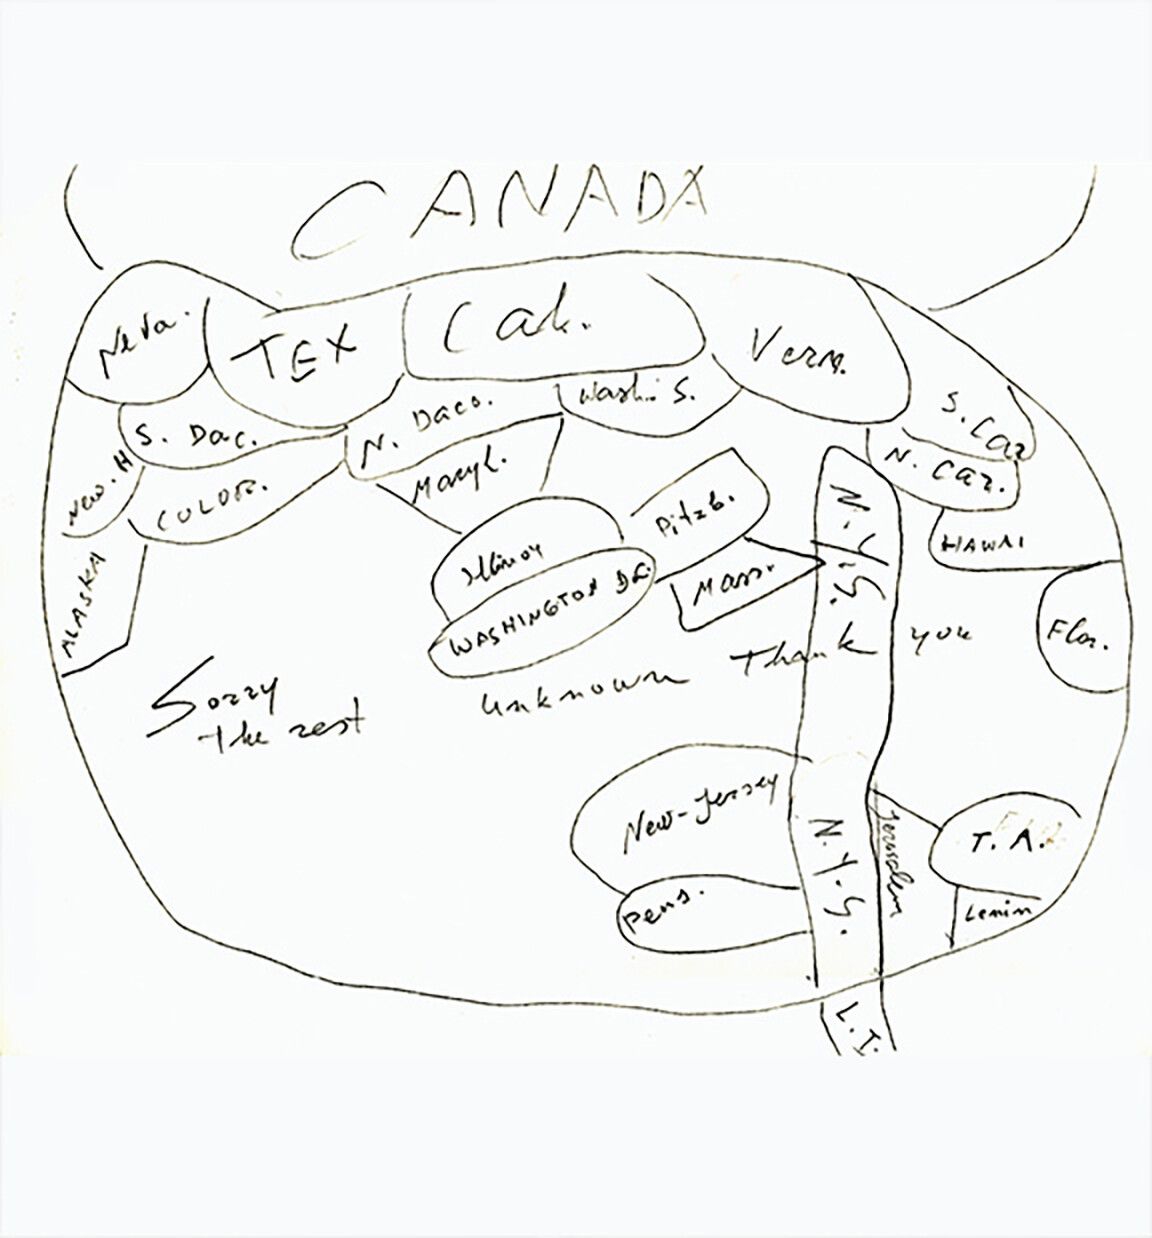 CANADA
Neva.
TEX
Cal.
Verm.
S. Car
S. Dac.
N. Daco.
Wash. S.
N. Car.
New. H
COLOR.
Maryl.
Pitzb.
N.Y.S.
HAWAI
ALASKA
Illinoy
WASHINGTON D.C.
Mass.
Flor.
Sorry
the rest
unknown
Thank
you
New-Jersey
N.Y.S.
Jerusalem
T. A.
Pens.
Lenin
L. I.